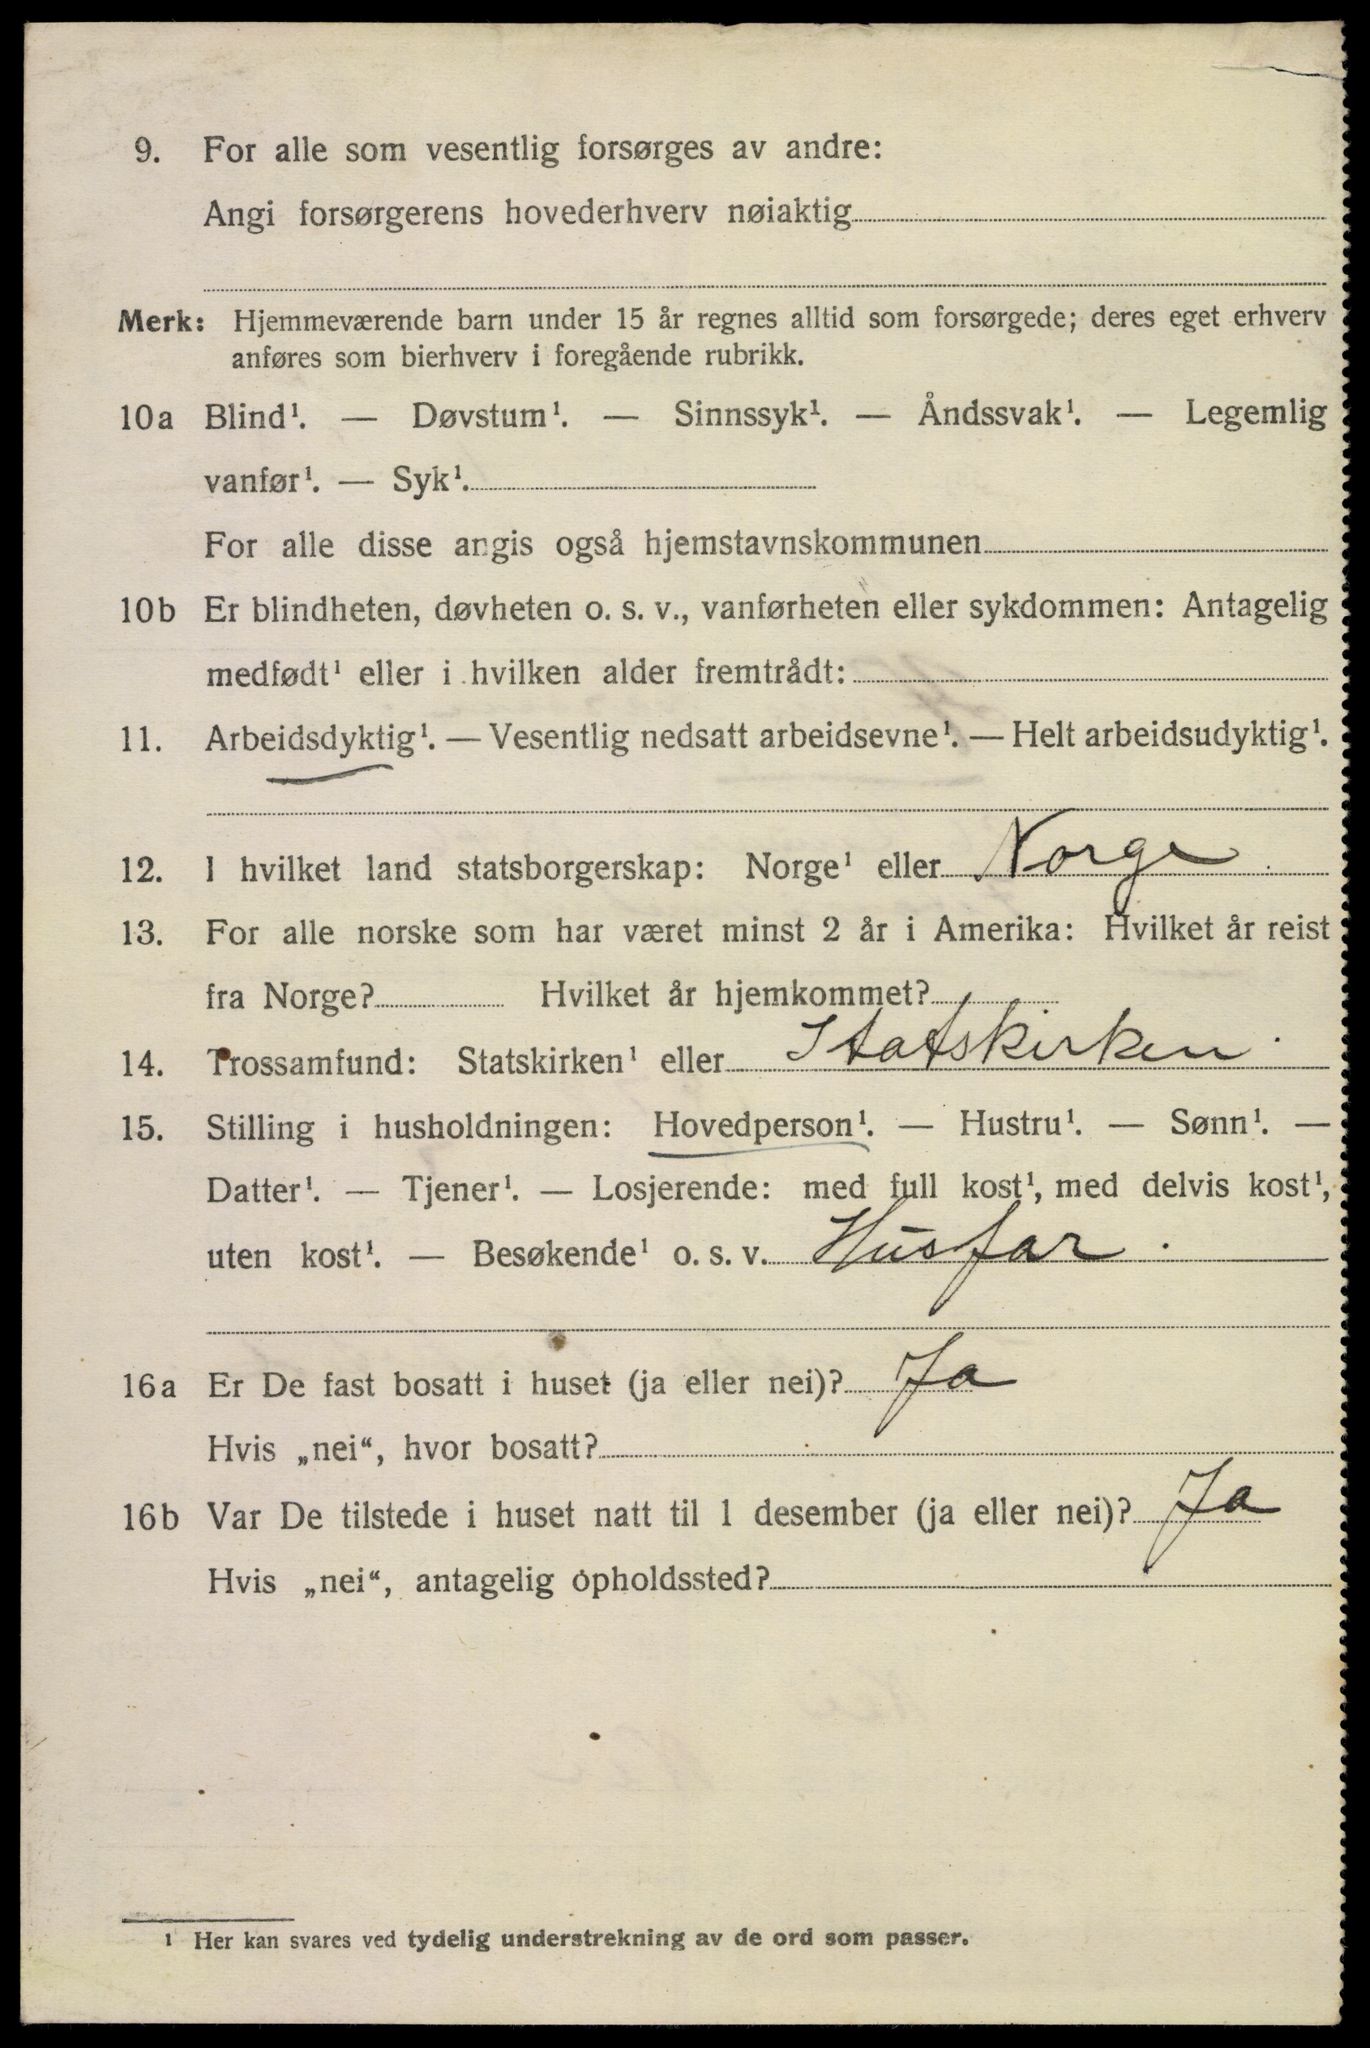 9. For alle som vesentlig forsørges av andre:
Angi forsørgerens hovederhverv nøiaktig
Merk: Hjemmeværende barn under 15 år regnes alltid som forsørgede; deres eget erhverv
anføres som bierhverv i foregående rubrikk.
10a Blind¹. — Døvstum¹. — Sinnssyk¹. — Åndssvak¹. — Legemlig
vanfør¹. — Syk¹.
For alle disse angis også hjemstavnskommunen
10b Er blindheten, døvheten o. s. v., vanførheten eller sykdommen: Antagelig
medfødt¹ eller i hvilken alder fremtrådt:
11. Arbeidsdyktig¹. — Vesentlig nedsatt arbeidsevne¹. — Helt arbeidsudyktig¹.
12. I hvilket land statsborgerskap: Norge¹ eller Norge.
13. For alle norske som har været minst 2 år i Amerika: Hvilket år reist
fra Norge? Hvilket år hjemkommet?
14. Trossamfund: Statskirken¹ eller Statskirken.
15. Stilling i husholdningen: Hovedperson¹. — Hustru¹. — Sønn¹. —
Datter¹. — Tjener¹. — Losjerende: med full kost¹, med delvis kost¹,
uten kost¹. — Besøkende¹ o. s. v. Husfar.
16a Er De fast bosatt i huset (ja eller nei)? Ja
Hvis „nei“, hvor bosatt?
16b Var De tilstede i huset natt til 1 desember (ja eller nei)? Ja
Hvis „nei“, antagelig opholdssted?
¹ Her kan svares ved tydelig understrekning av de ord som passer.